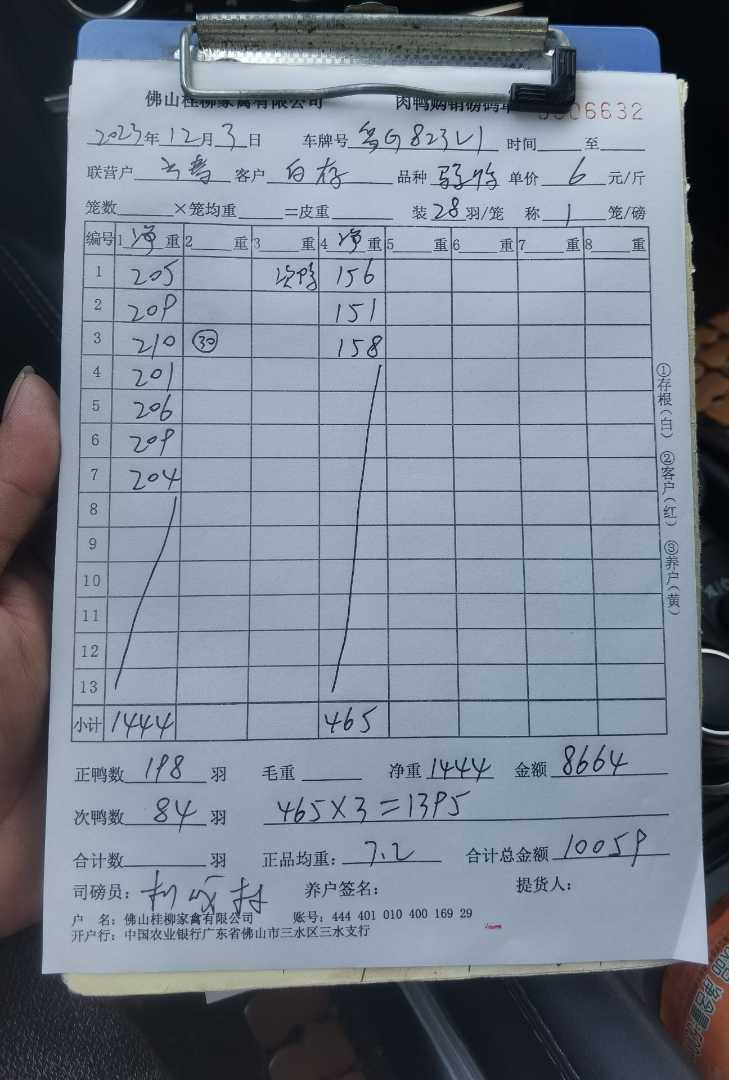 佛山桂柳家禽有限公司 肉鸭购销磅码单 0006632
2023年12月3日 车牌号 粤G823L1 时间____至____
联营户____客户 白存 品种____单价 6 元/斤
笼数____×笼均重____=皮重____ 装28羽/笼 称1笼/磅
编号 1 净 重 2 重 3 重 4 净 重 5 重 6 重 7 重 8 重
1 205 次鸭 156
2 209 151
3 210 30 158
4 201
5 206
6 209
7 204
8
9
10
11
12
13
小计 1444 465
正鸭数 198 羽 毛重____ 净重 1444 金额 8664
次鸭数 84 羽 465×3=1395
合计数____羽 正品均重: 7.2 合计总金额 10059
司磅员: 养户签名: 提货人:
户 名: 佛山桂柳家禽有限公司 账号: 444 401 010 400 169 29
开户行: 中国农业银行广东省佛山市三水区三水支行
①存根(白) ②客户(红) ③养户(黄)